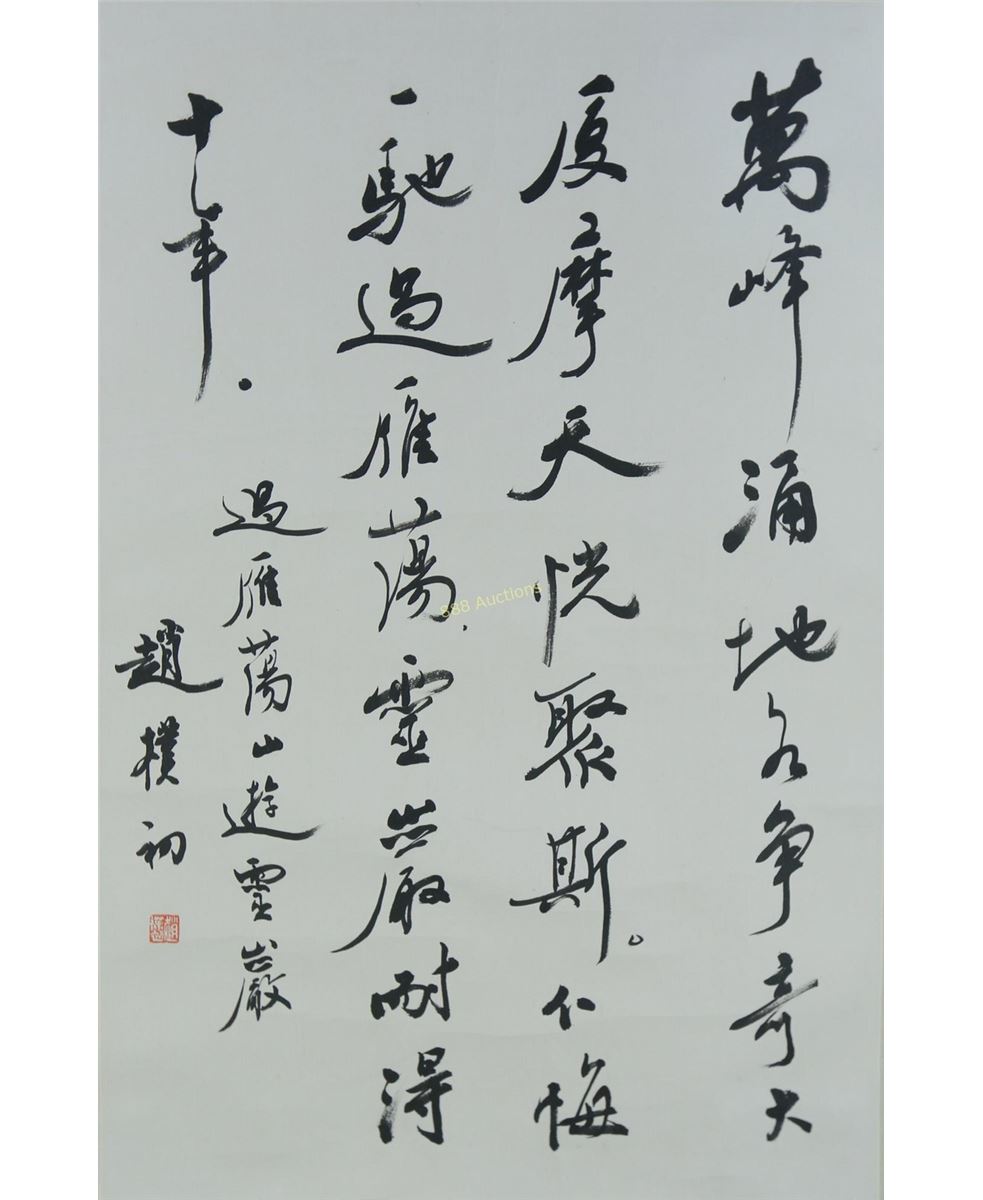 萬峰涌地各争奇大
厦摩天恍聚斯。不悔
一馳過雁蕩靈巖耐得
十年
過雁蕩山遊靈巖
趙樸初
888 Auctions